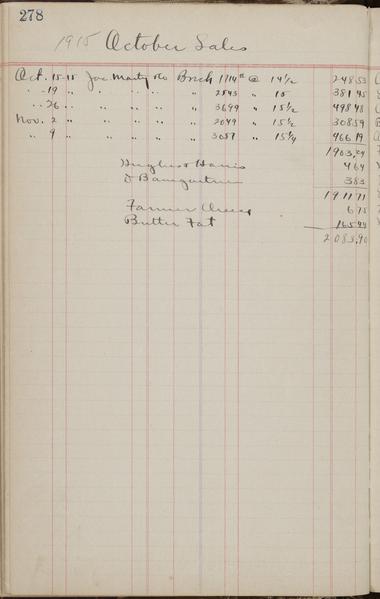 278
1915 October Sales
Oct. 15 15 Joe Marty &Co Brick 1714# @ 14 1/2 248 53
" 19 " " " " " 2543 " 15 381 45
" 26 " " " " " 3699 " 15 1/2 498 48
Nov. 2 " " " " " 2049 " 15 1/2 308 59
" 9 " " " " " 3057 " 15 1/4 466 19
1903,24
Hughes & Harris 4 64
D Baumgartner 3 83
1911 71
Farmer Cheese 6 75
Butter Fat 165 44
2083,90